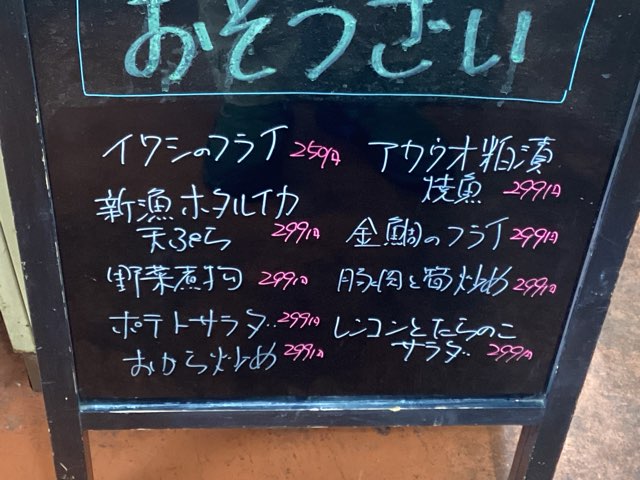 おそうざい
イワシのフライ 250円
新漁ホタルイカ
天ぷら 299円
野菜煮物 299円
ポテトサラダ 299円
おから炒め 299円
アカウオ粕漬
焼魚 299円
金鯛のフライ 299円
豚肉と筍炒め 299円
レンコンとたらのこ
サラダ 299円